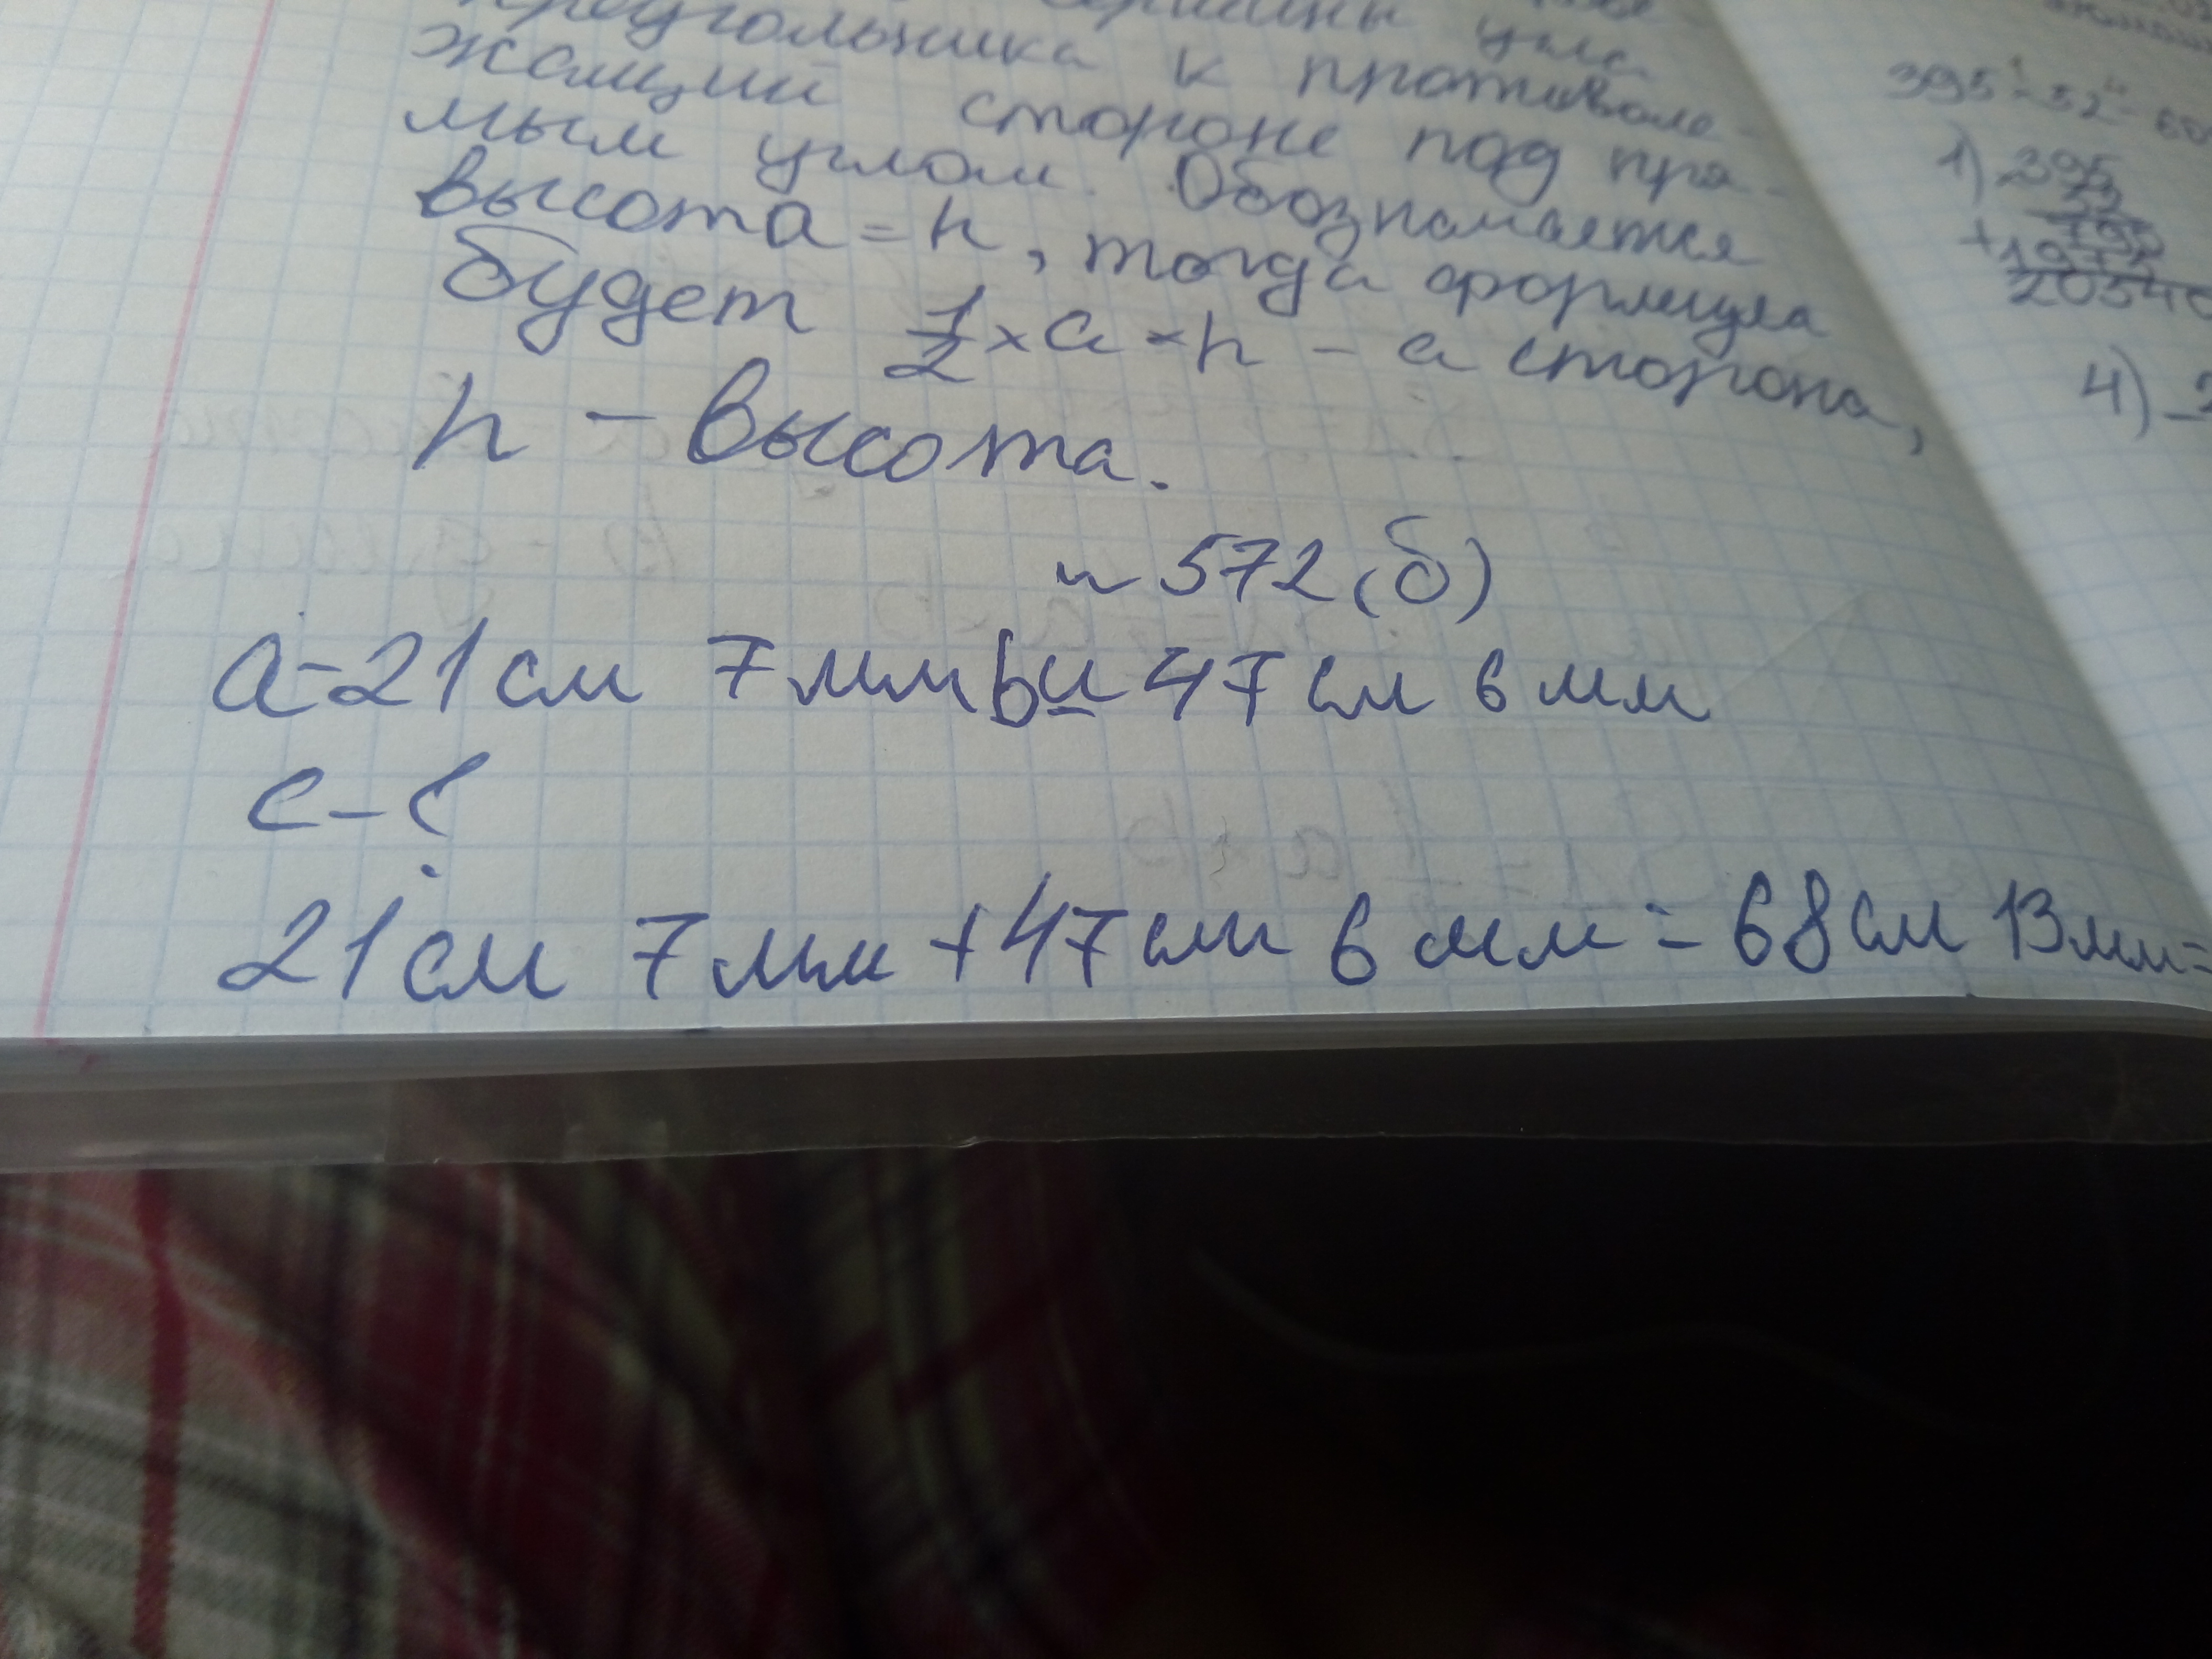 треугольника к противоле-
жащий стороне под пря-
мым углом. Обозначается
высота = h, тогда формула
будет 1/2 × a × h - a сторона,
h - высота.
~ 572 (б)
a = 21 см 7 мм b и 47 см 6 мм
c - ?
21 см 7 мм + 47 см 6 мм = 68 см 13 мм =
1) 395
4) -